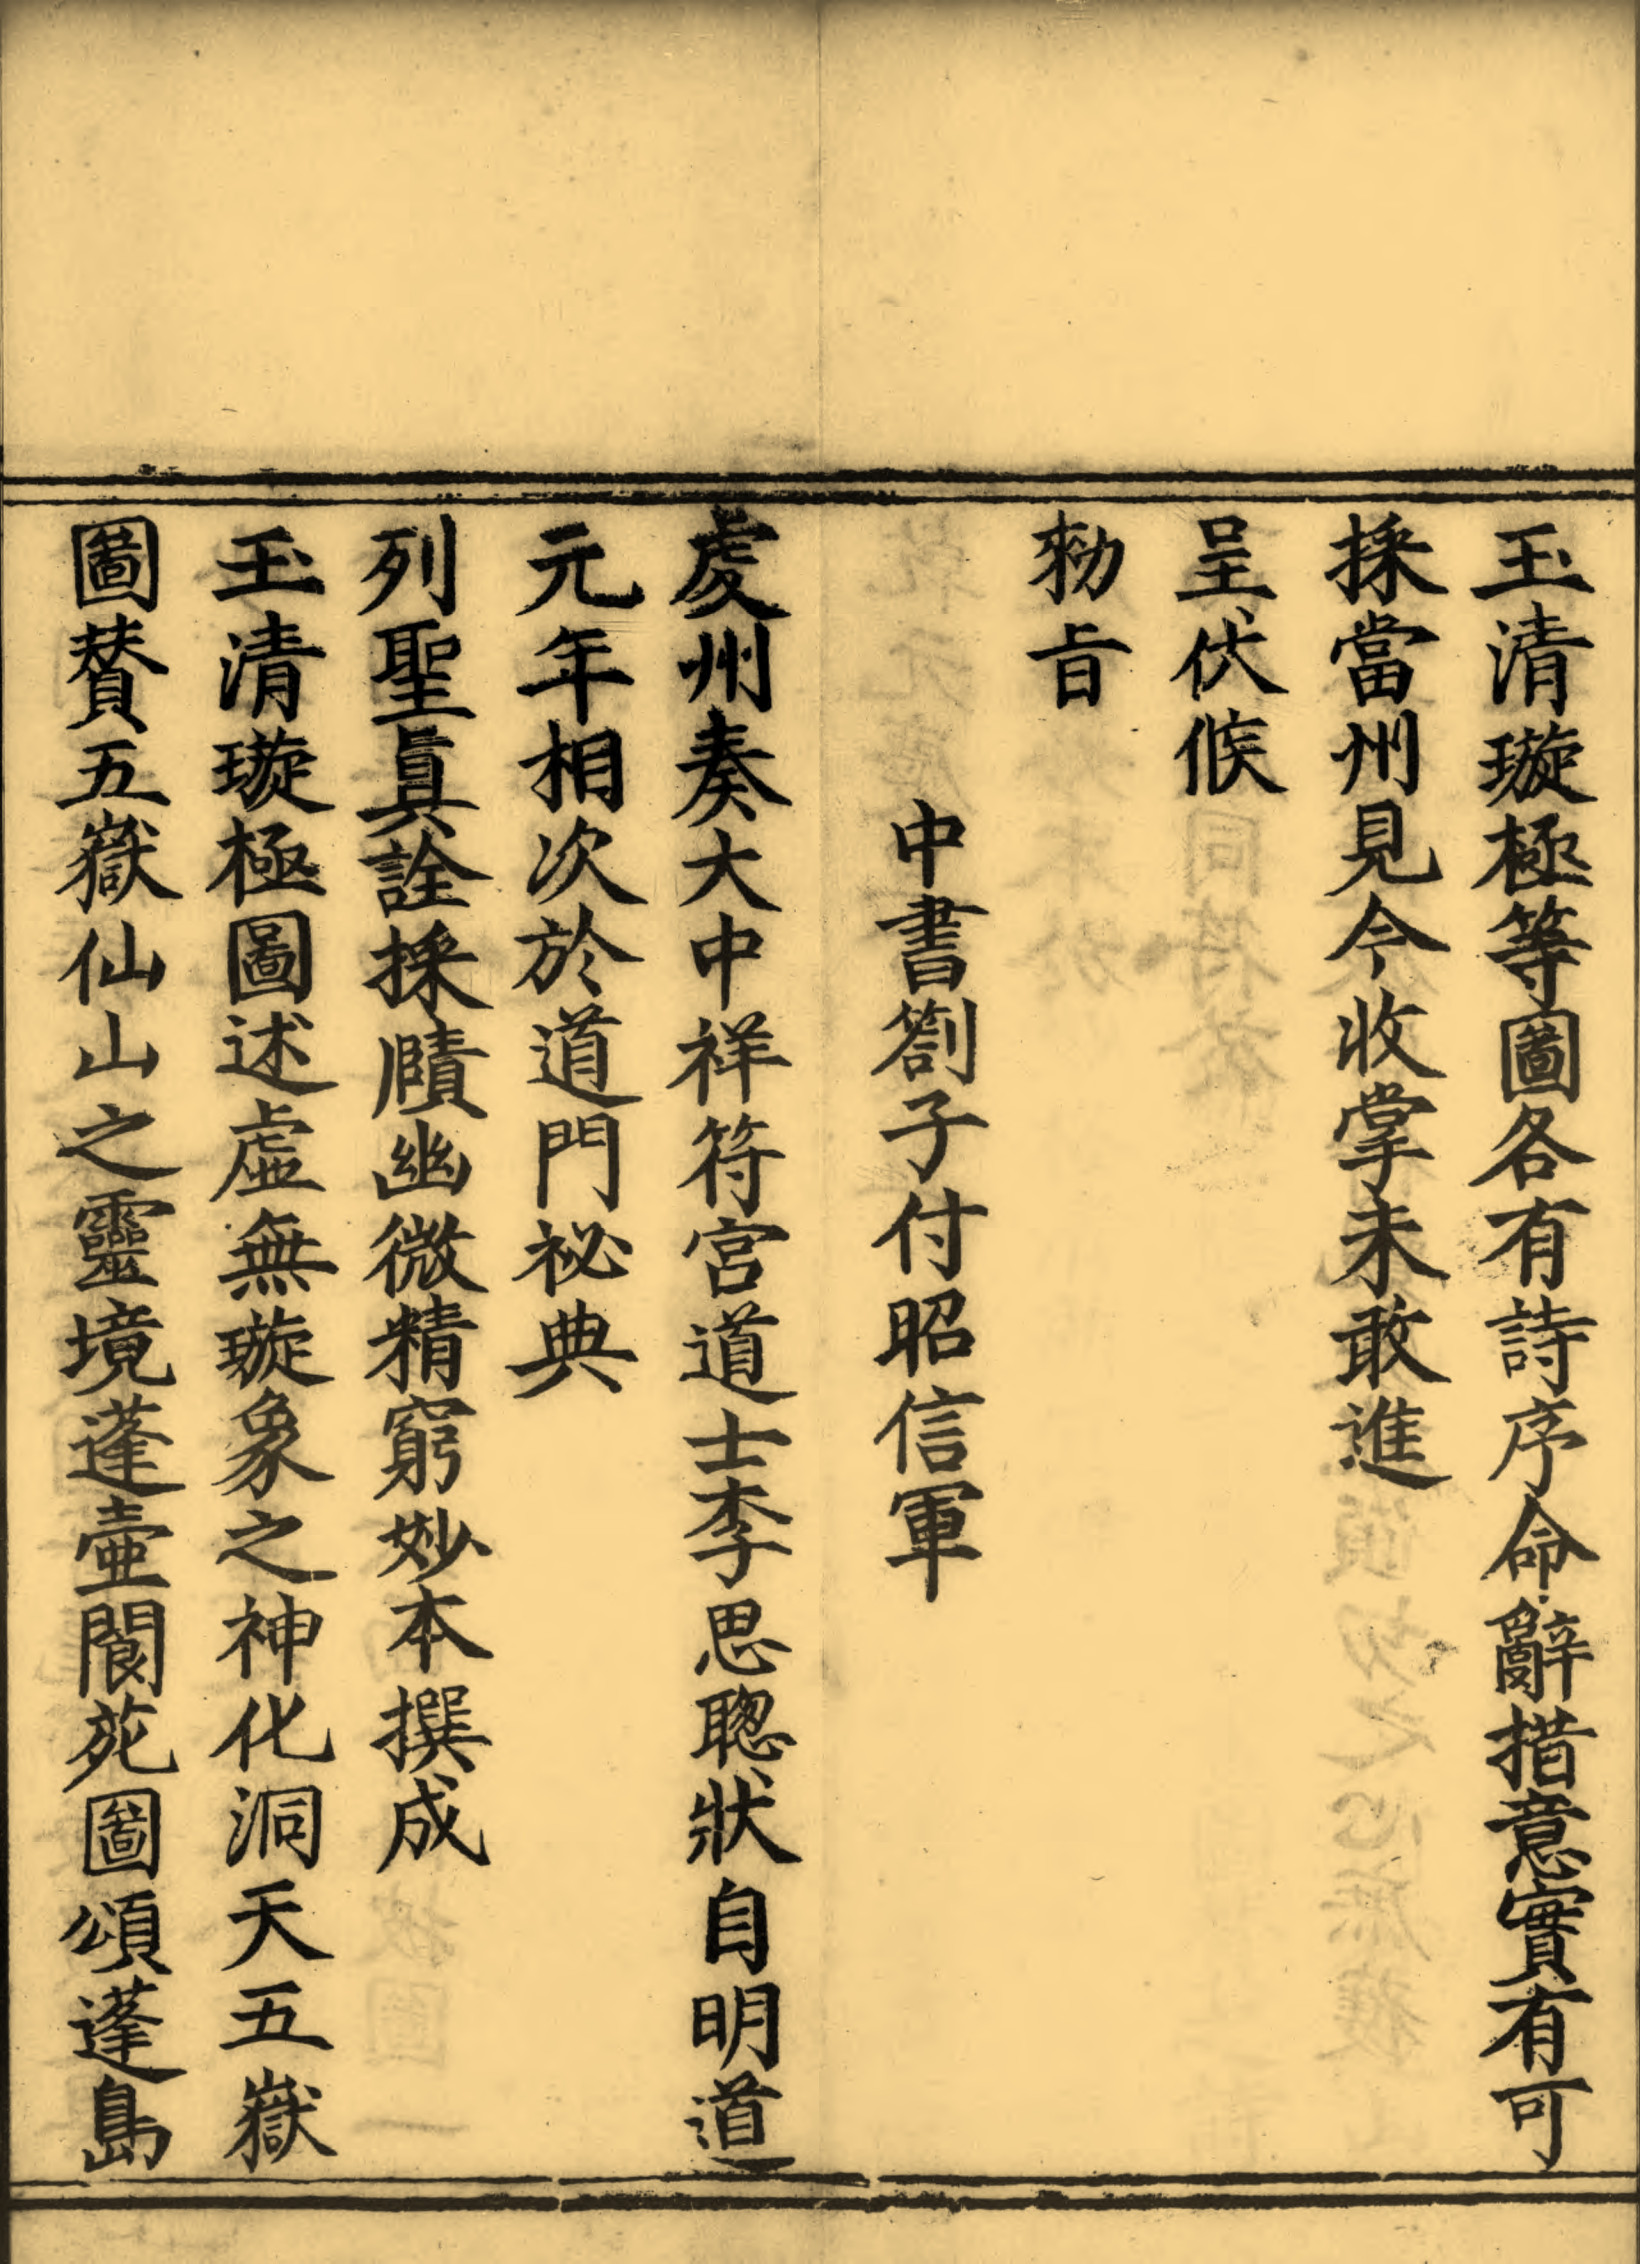 玉清璇極等圖各有詩序命辭措意實有可
採當州見今收掌未敢進
呈伏候
勑旨
中書劄子付昭信軍
虔州奏大中祥符宮道士李思聰狀自明道
元年相次於道門祕典
列聖眞詮採賾幽微精窮妙本撰成
玉清璇極圖述虛無璇象之神化洞天五嶽
圖贊五嶽仙山之靈境蓬壷閬苑圖頌蓬島